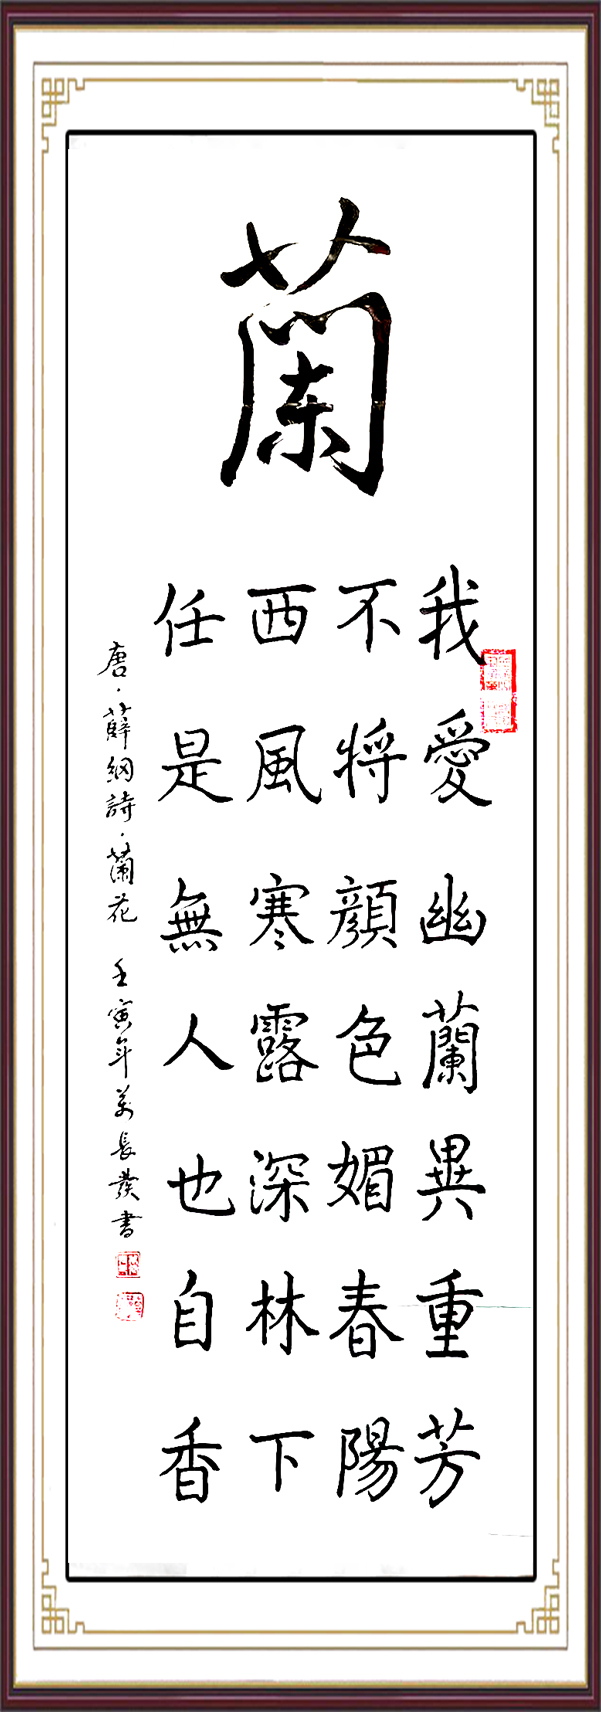 蘭
我愛幽蘭異重芳
不將顏色媚春陽
西風寒露深林下
任是無人也自香
唐·薛網詩·蘭花 壬寅年萬長發書